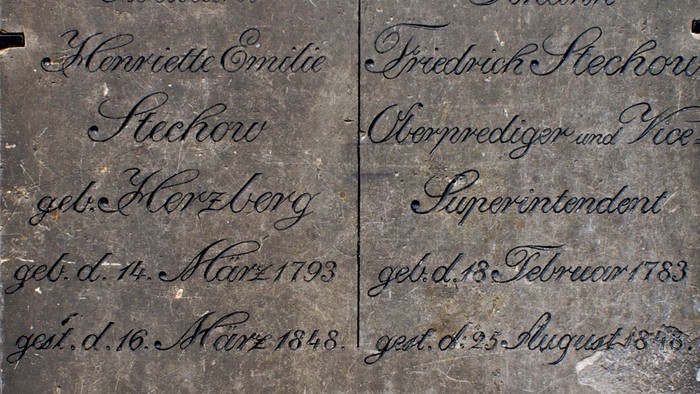 Henriette Emilie
Stechow
geb. Herzberg
geb. d. 14. März 1793
gest. d. 16. März 1848.
Johann
Friedrich Stechow
Oberprediger und Vice-
Superintendent
geb. d. 18 Februar 1783
gest. d. 25 August 1848.